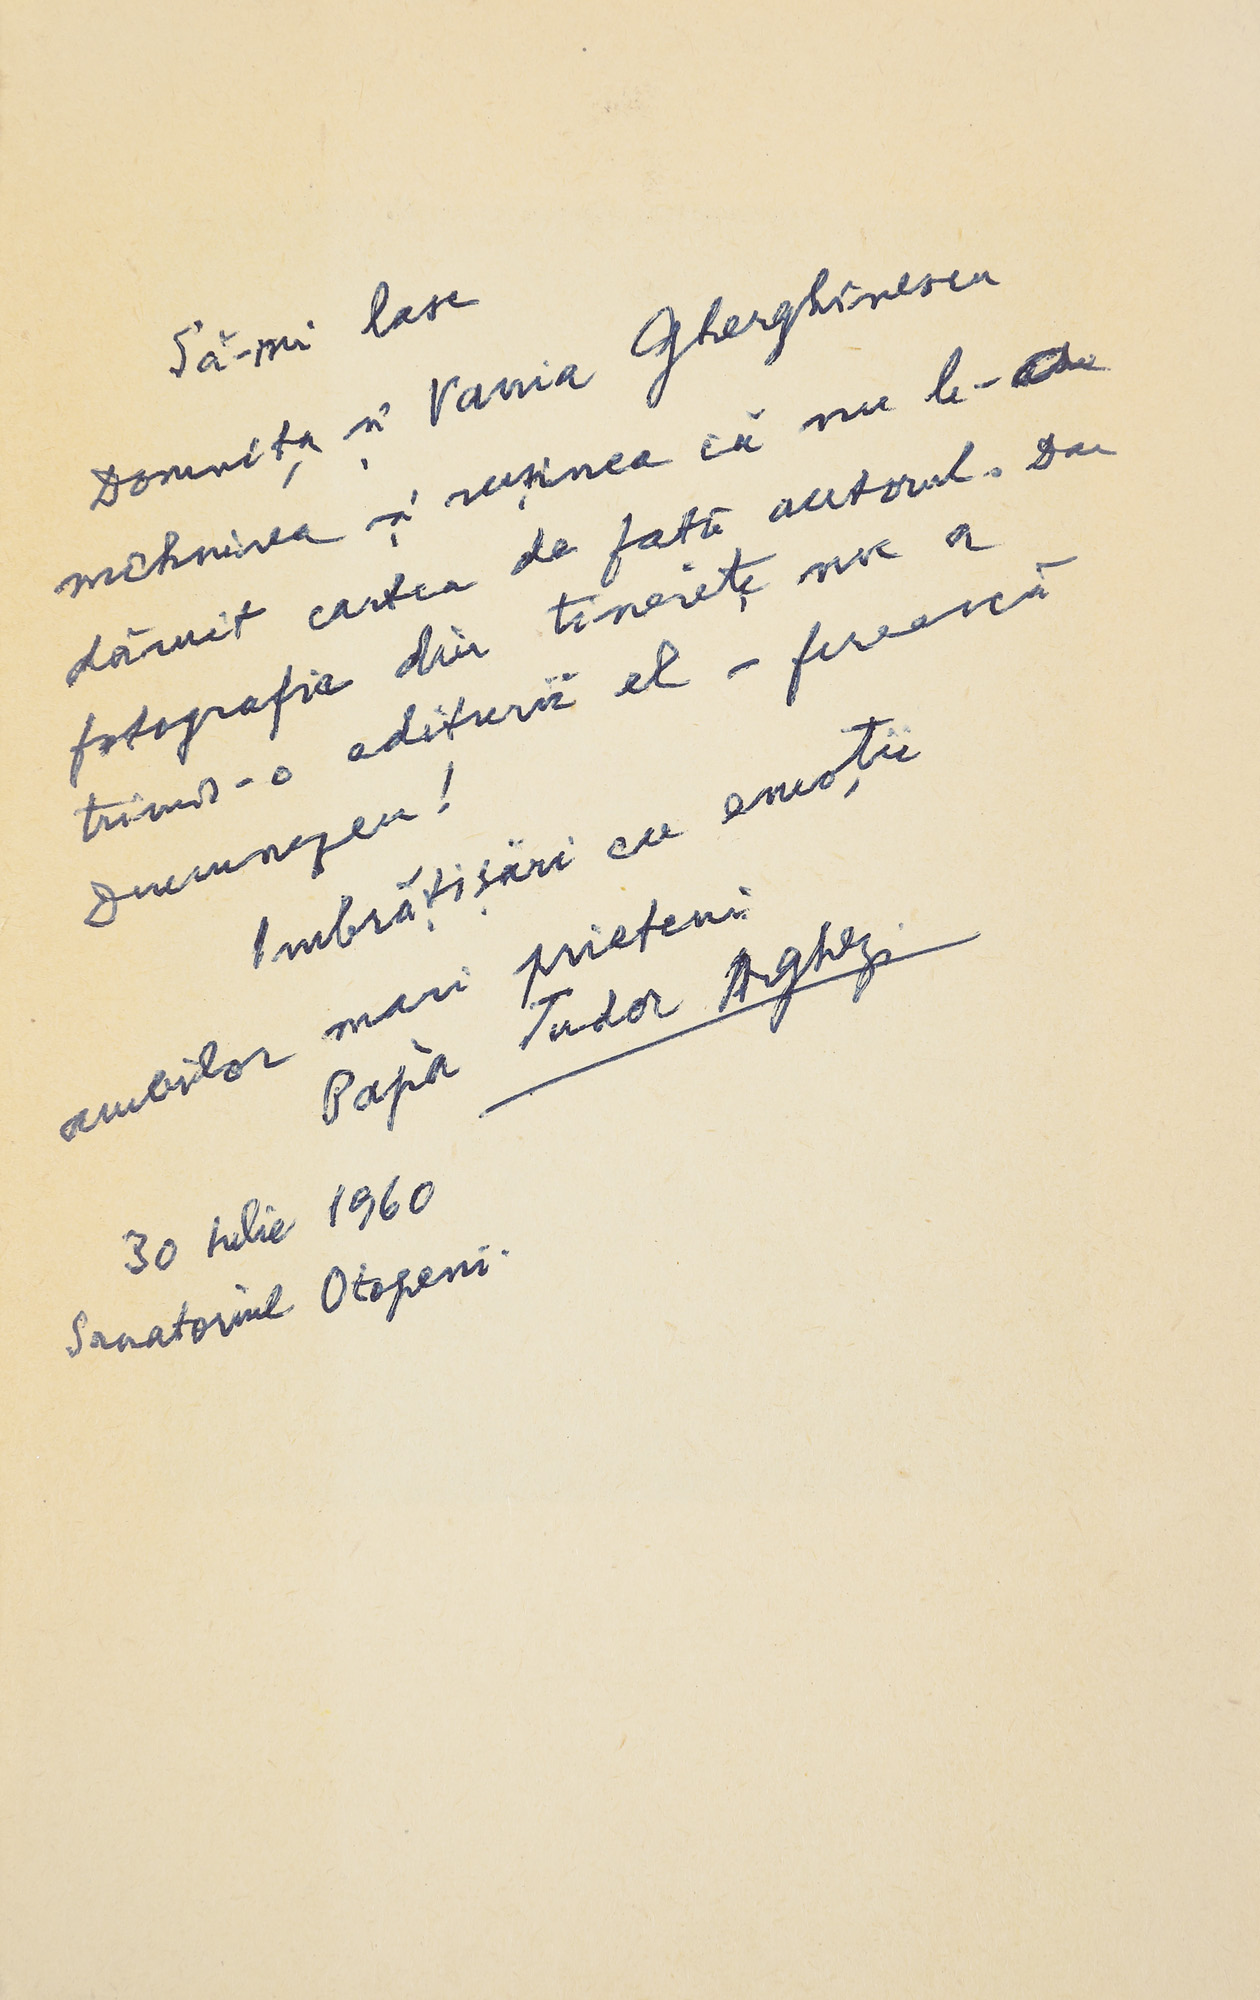 Să-mi lase
Domnița și Vania Gherghinescu
mîhnirea și rușinea că nu le-a
dăruit cartea de fată autorul. Dar
fotografie din tinerețe nu a
trimis-o editurii el – ferească
Dumnezeu!
Imbrățișări cu emoții
ambilor mari prieteni
Papà Tudor Arghezi.
30 Iulie 1960
Sanatoriul Otopeni.